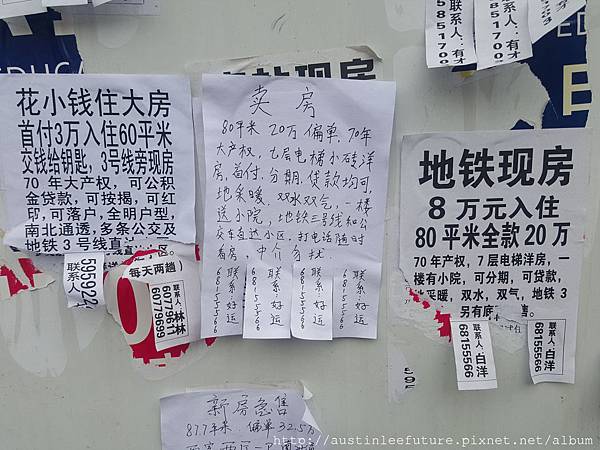 联系人
58851709
联系人:有才
58517009
联系人:有才
花小钱住大房
首付3万入住60平米
交钱给钥匙,3号线旁现房
70 年大产权,可公积
金贷款,可按揭,可红
印,可落户,全明户型,
南北通透,多条公交及
地铁 3 号线直
联系人
每天两趟
联系人:林林
60779699
卖房
80平米 20万 偏单,70年
大产权,七层电梯小砖洋
房,首付,分期,贷款均可,
地采暖,双水双气,一楼
送小院,地铁三号线和公
交车直达小区,打电话随时
看房,中介勿扰
联系:好运
68155566
联系:好运
68155566
联系:好运
68155566
联系:好运
68155566
现房
地铁现房
8 万元入住
80 平米全款 20 万
70 年产权,7 层电梯洋房,一
楼有小院,可分期,可贷款,
采暖,双水,双气,地铁 3
另有
联系人:白洋
68155566
联系人:白洋
68155566
新房急售
87.7平米 偏单 32.5万
http://austinleefuture.pixnet.net/album